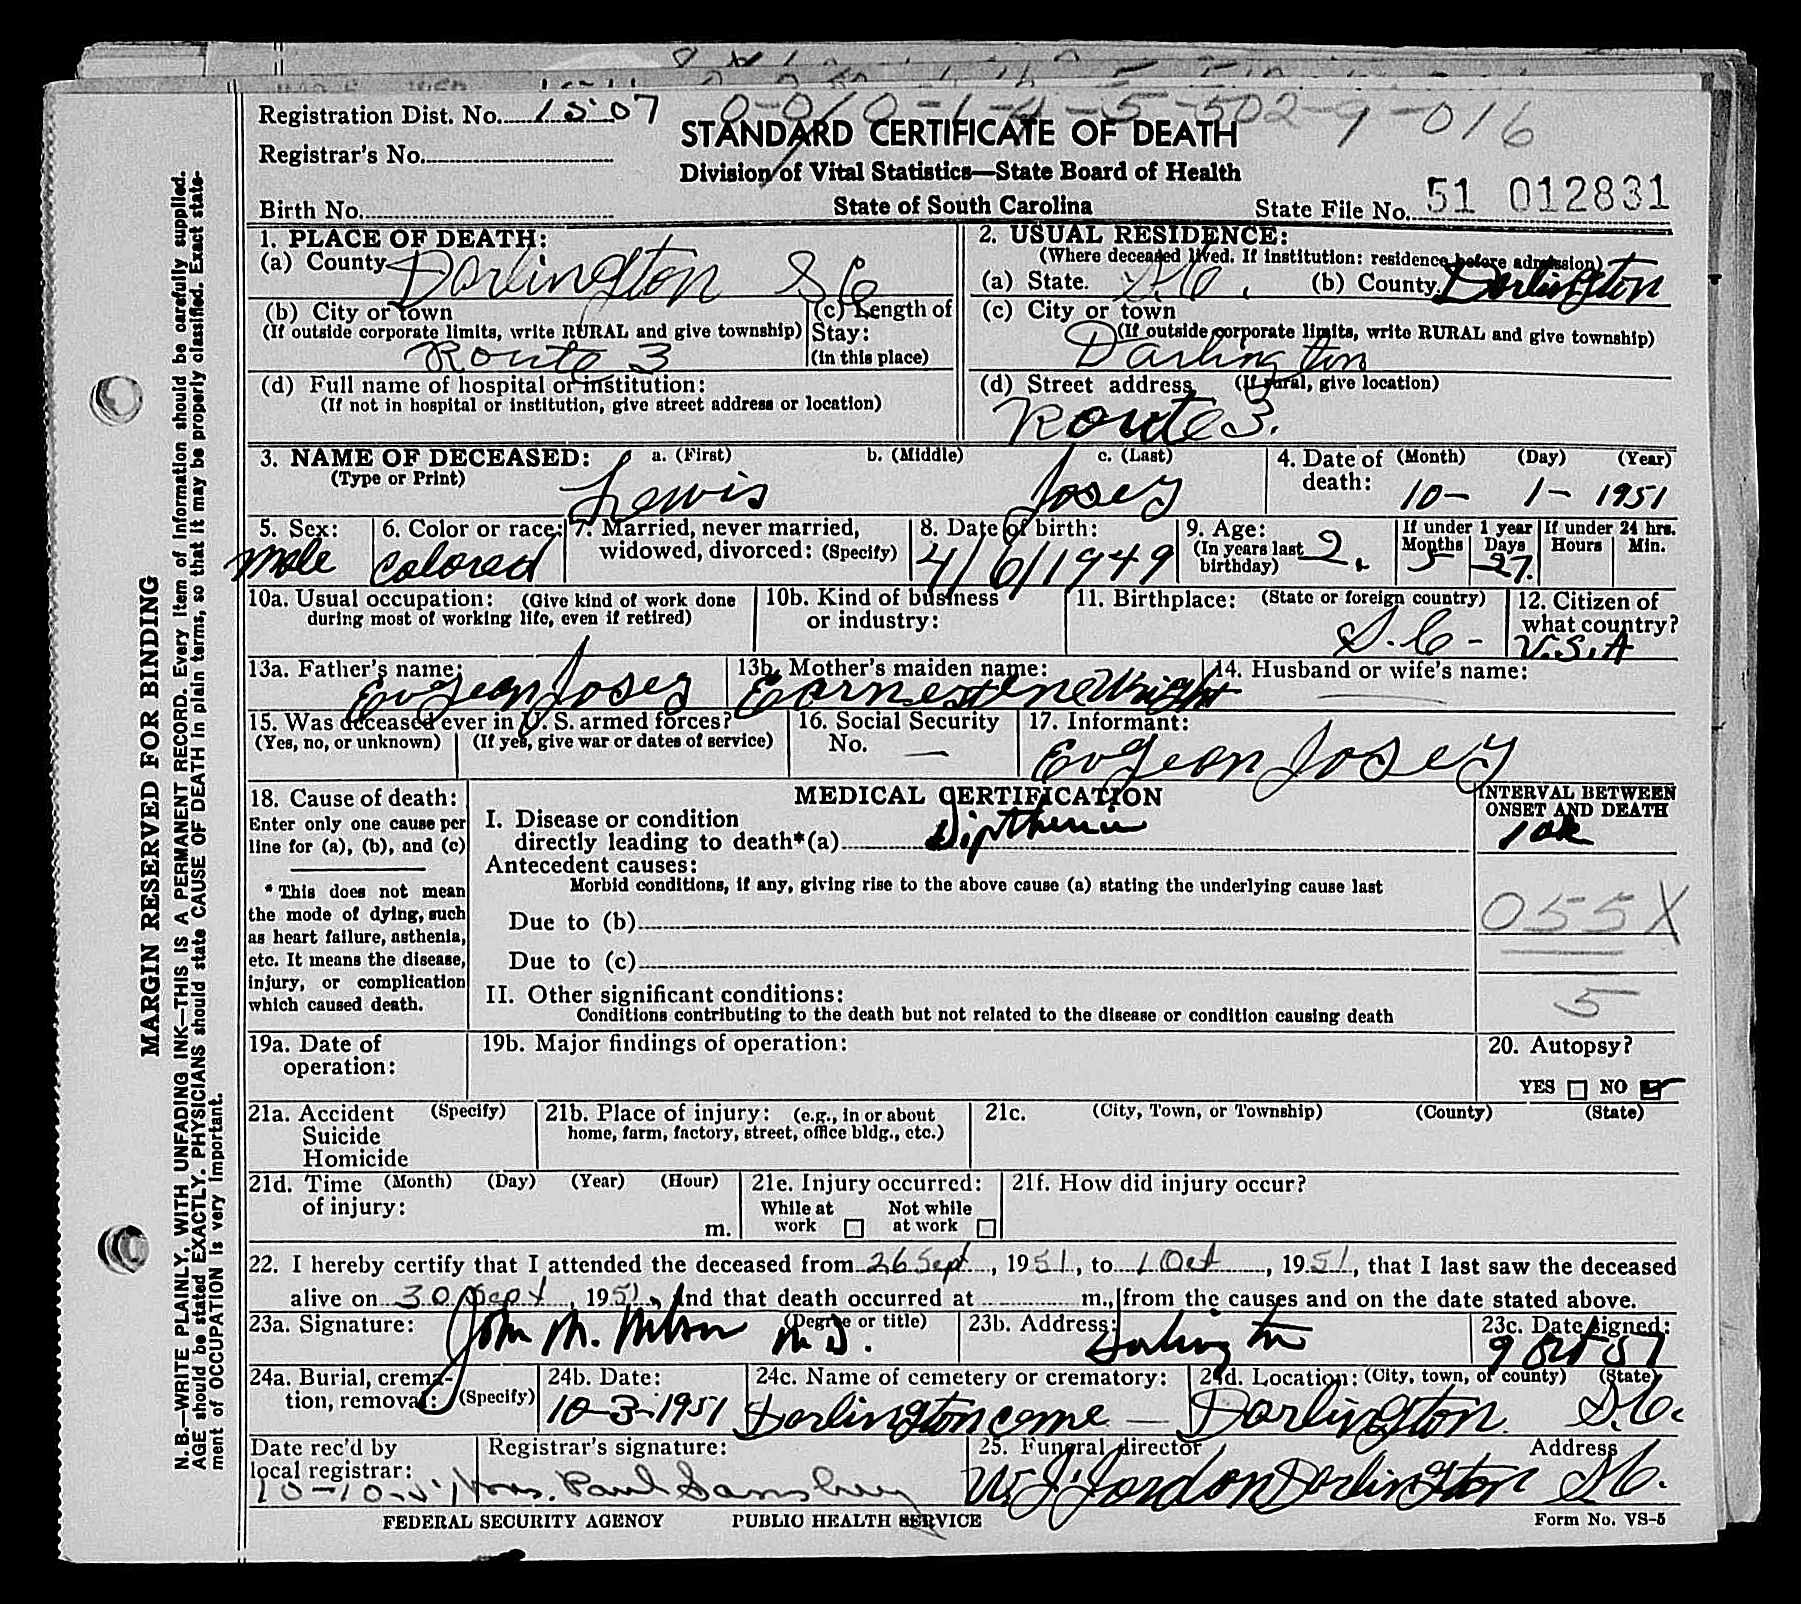 Registration Dist. No. 1507 0-0/0-1-4-5-502-9-016
STANDARD CERTIFICATE OF DEATH
Registrar's No.
Division of Vital Statistics—State Board of Health
Birth No.
State of South Carolina
State File No. 51 012831
1. PLACE OF DEATH:
(a) County Darlington S C
2. USUAL RESIDENCE:
(Where deceased lived. If institution: residence before admission)
(a) State. S.C. (b) County. Darlington
(b) City or town
(If outside corporate limits, write RURAL and give township)
Route 3
(c) Length of
Stay:
(in this place)
(c) City or town
(If outside corporate limits, write RURAL and give township)
Darlington
(d) Full name of hospital or institution:
(If not in hospital or institution, give street address or location)
(d) Street address (If rural, give location)
Route 3.
3. NAME OF DECEASED: a. (First) b. (Middle) c. (Last)
(Type or Print)
Lewis Josey
4. Date of (Month) (Day) (Year)
death: 10- 1- 1951
5. Sex:
male
6. Color or race:
Colored
7. Married, never married,
widowed, divorced: (Specify)
8. Date of birth:
4/6/1949
9. Age:
(In years last
birthday) 2.
If under 1 year
Months Days
5 27.
If under 24 hrs.
Hours Min.
10a. Usual occupation: (Give kind of work done
during most of working life, even if retired)
10b. Kind of business
or industry:
11. Birthplace: (State or foreign country)
S. C -
12. Citizen of
what country?
U.S.A
13a. Father's name:
Evgeon Josey
13b. Mother's maiden name:
Earnestine Wright
14. Husband or wife's name:
15. Was deceased ever in U. S. armed forces?
(Yes, no, or unknown) (If yes, give war or dates of service)
16. Social Security
No. —
17. Informant:
Evgeon Josey
18. Cause of death:
Enter only one cause per
line for (a), (b), and (c)
* This does not mean
the mode of dying, such
as heart failure, asthenia,
etc. It means the disease,
injury, or complication
which caused death.
MEDICAL CERTIFICATION
I. Disease or condition
directly leading to death*(a) Diptheria
Antecedent causes:
Morbid conditions, if any, giving rise to the above cause (a) stating the underlying cause last
Due to (b)
Due to (c)
II. Other significant conditions:
Conditions contributing to the death but not related to the disease or condition causing death
INTERVAL BETWEEN
ONSET AND DEATH
055X
5
19a. Date of
operation:
19b. Major findings of operation:
20. Autopsy?
YES NO
21a. Accident (Specify)
Suicide
Homicide
21b. Place of injury: (e.g., in or about
home, farm, factory, street, office bldg., etc.)
21c. (City, Town, or Township) (County) (State)
21d. Time (Month) (Day) (Year) (Hour)
of injury: m.
21e. Injury occurred:
While at Not while
work at work
21f. How did injury occur?
22. I hereby certify that I attended the deceased from 26 Sept, 1951, to 1 Oct, 1951, that I last saw the deceased
alive on 30 Sept, 1951, and that death occurred at m., from the causes and on the date stated above.
23a. Signature: (Degree or title)
John M. Wilson M.D.
23b. Address:
Darlington
23c. Date signed:
9 Oct 51
24a. Burial, crema-
tion, removal: (Specify)
24b. Date:
10-3-1951
24c. Name of cemetery or crematory:
Darlington ceme —
24d. Location: (City, town, or county) (State)
Darlington S.C.
Date rec'd by
local registrar:
10-10-51
Registrar's signature:
Mrs. Paul Sansbury
25. Funeral director Address
W. J. Jordon Darlington S.C.
FEDERAL SECURITY AGENCY PUBLIC HEALTH SERVICE Form No. VS-5
MARGIN RESERVED FOR BINDING
N.B.—WRITE PLAINLY, WITH UNFADING INK—THIS IS A PERMANENT RECORD. Every item of information should be carefully supplied.
AGE should be stated EXACTLY. PHYSICIANS should state CAUSE OF DEATH in plain terms, so that it may be properly classified. Exact state-
ment of OCCUPATION is very important.